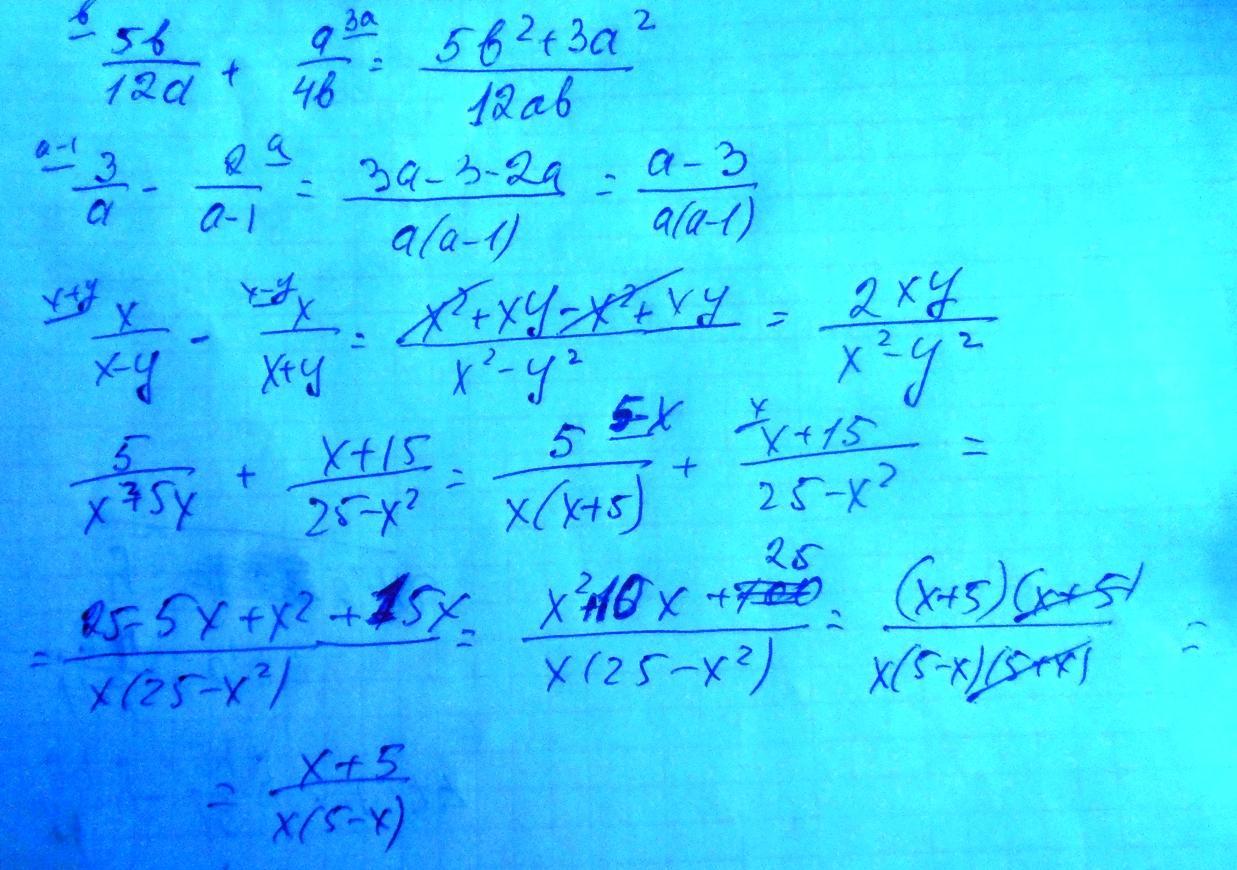 b 5b/12a + a/4b 3a = (5b²+3a²)/12ab
a-1 3/a - 2/(a-1) a = (3a-3-2a)/(a(a-1)) = (a-3)/(a(a-1))
x+y x/(x-y) - x-y x/(x+y) = (x²+xy-x²+xy)/(x²-y²) = 2xy/(x²-y²)
5/(x²+5x) + (x+15)/(25-x²) = 5/(x(x+5)) 5-x + x (x+15)/(25-x²) =
= (25-5x+x²+15x)/(x(25-x²)) = (x²+10x+25)/(x(25-x²)) = (x+5)(x+5)/(x(5-x)(5+x)) =
= (x+5)/(x(5-x))